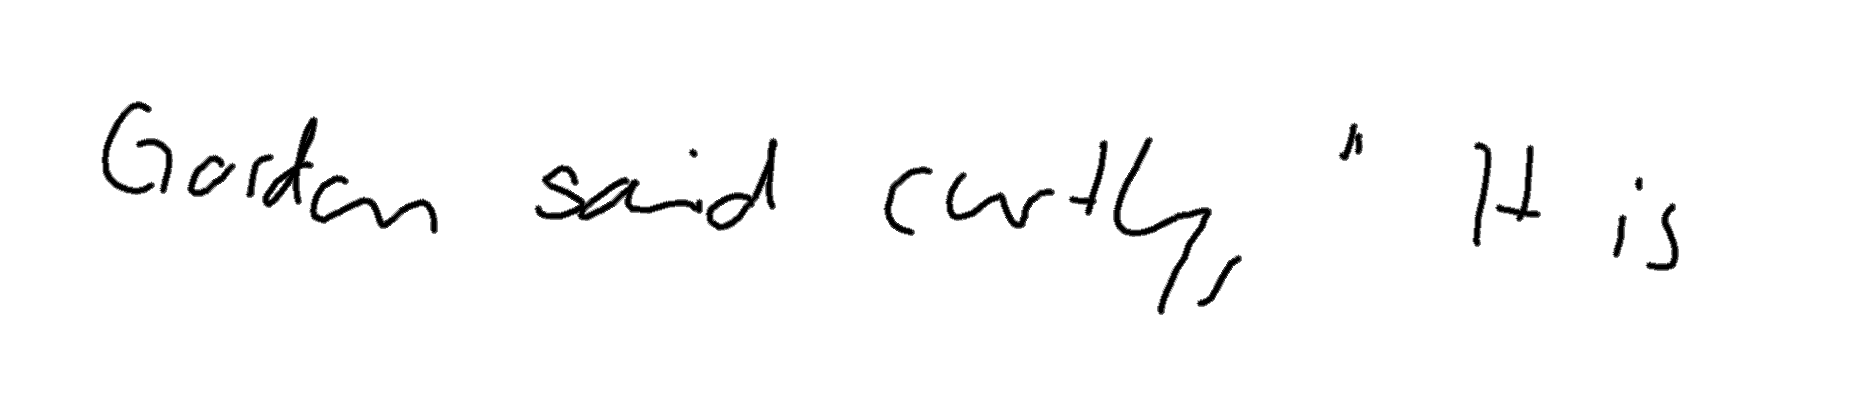 Gordon said curtly, "It is